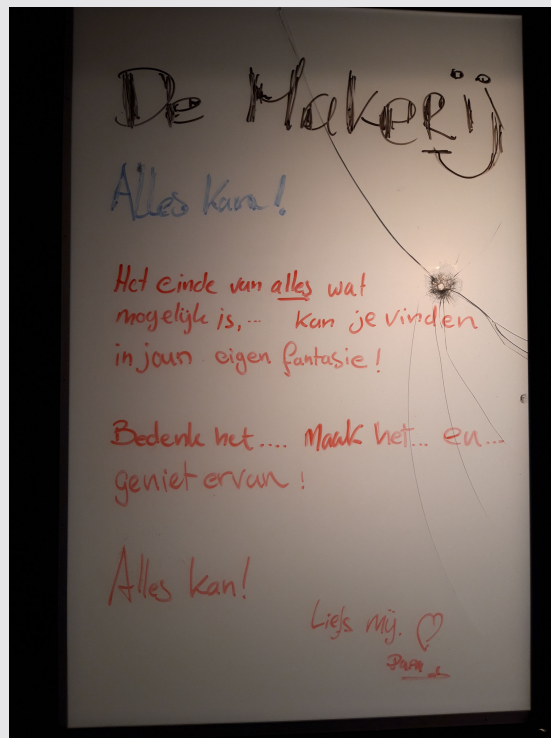 De Makerij
Alles kan!
Het einde van alles wat
mogelijk is,... kan je vinden
in joun eigen fantasie!
Bedenk het.... Maak het... en...
geniet ervan!
Alles kan!
Liefs mij.